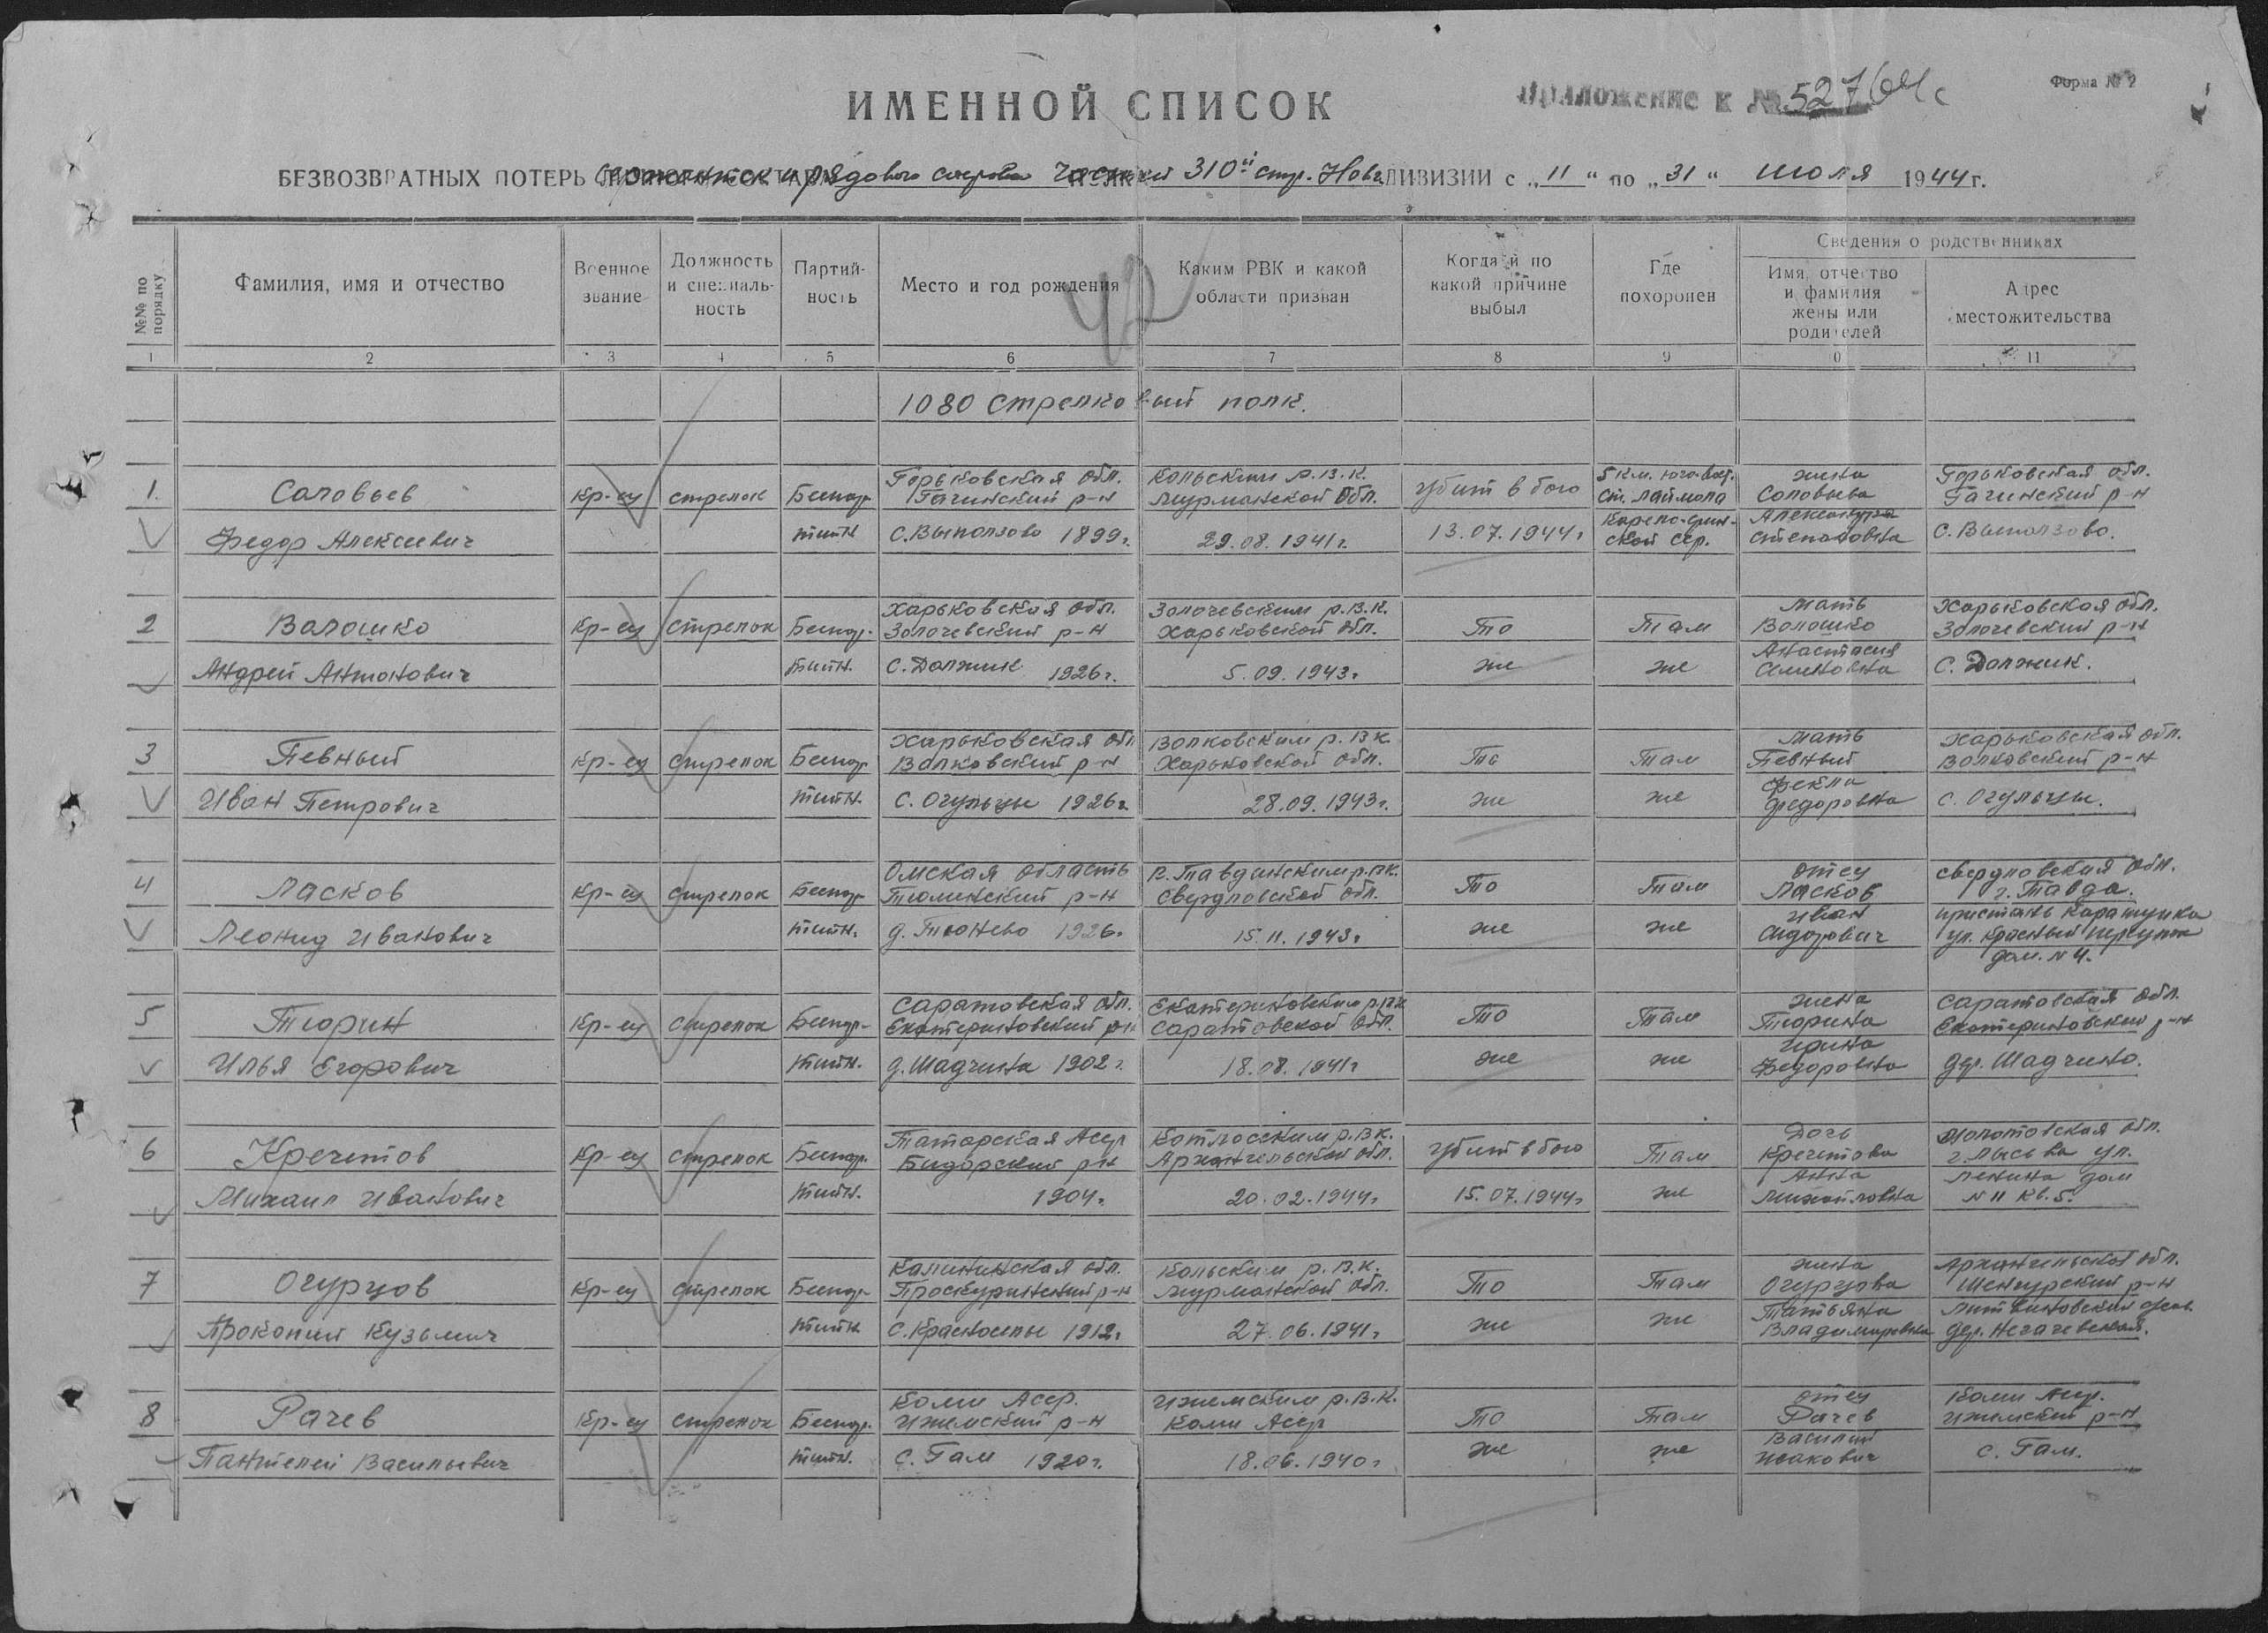 Форма № 2
Приложение к № 52760с
ИМЕННОЙ СПИСОК
БЕЗВОЗВРАТНЫХ ПОТЕРЬ сержантск и рядового состава частей 310й стр. Новг. ДИВИЗИИ с „11“ по „31“ июля 1944 г.
№№ по порядку
Фамилия, имя и отчество
Военное звание
Должность и специальность
Партийность
Место и год рождения
Каким РВК и какой области призван
Когда и по какой причине выбыл
Где похоронен
Сведения о родственниках
Имя, отчество и фамилия жены или родителей
Адрес местожительства
1 2 3 4 5 6 7 8 9 10 11
42
1080 стрелковый полк.
1. Соловьев Федор Алексеевич
кр-ец стрелок Беспартийн
Горьковская обл. Гагинский р-н с. Выползово 1899г.
Кольским р.в.к. Мурманской обл. 29.08.1941г.
убит в бою 13.07.1944г
5 км. юго-вост. ст. Лаймола Карело-финской сср.
жена Соловьева Александра Степановна
Горьковская обл. Гагинский р-н с. Выползово.
2 Волошко Андрей Антонович
кр-ец стрелок Беспартийн.
Харьковская обл. Золочевский р-н с. Должик 1926г.
Золочевским р.в.к. Харьковской обл. 5.09.1943г
То же
Там же
мать Волошко Анастасия Семеновна
Харьковская обл. Золочевский р-н с. Должик.
3 Певный Иван Петрович
кр-ец стрелок Беспартийн.
Харьковская обл Волковский р-н с. Огульцы 1926г
Волковским р.вк Харьковской обл. 28.09.1943г.
То же
Там же
мать Певный Фекла Федоровна
Харьковская обл. Волковский р-н с. Огульцы.
4 Ласков Леонид Иванович
кр-ец стрелок Беспартийн.
Омская область Тюменский р-н д. Тюнево 1926г
Н. Тавдинским р.вк. Свердловской обл. 15.11.1943г
То же
Там же
отец Ласков Иван Сидорович
Свердловская обл. г. Тавда. пристань Каратунка ул. Красный дом. N 4.
5 Тюрин Илья Егорович
кр-ец стрелок Беспартийн.
Саратовская обл. Екатериновский р-н д. Шадчина 1902г
Екатериновским р.вк Саратовской обл. 18.08.1941г
То же
Там же
жена Тюрина Ирина Федоровна
Саратовская обл. Екатериновский р-н дер. Шадчино.
6 Кречетов Михаил Иванович
кр-ец стрелок Беспартийн.
Татарская Асср Бидарский р-н 1904г.
Котласским р.вк. Архангельской обл. 20.02.1944г
убит в бою 15.07.1944г
Там же
Дочь Кречетова Анна Михайловна
Молотовская обл. г. Лысьва ул. Ленина дом N 11 кв. 5.
7 Огурцов Прокопий Кузьмич
кр-ец стрелок Беспартийн
Калининская обл. Проскуринский р-н с. Красноселы 1912г
Кольским р.в.к. Мурманской обл. 27.06.1941г
То же
Там же
жена Огурцова Татьяна Владимировна
Архангельской обл. Шенкурский р-н Литвиновский сел. дер. Негачевская.
8 Рачев Пантелей Васильевич
кр-ец стрелок Беспартийн.
Коми Асср. Ижемский р-н с. Гам 1920г.
Ижемским р.в.к. Коми Асср 18.06.1940г
То же
Там же
отец Рачев Василий Исакович
Коми Асср. Ижемский р-н с. Гам.